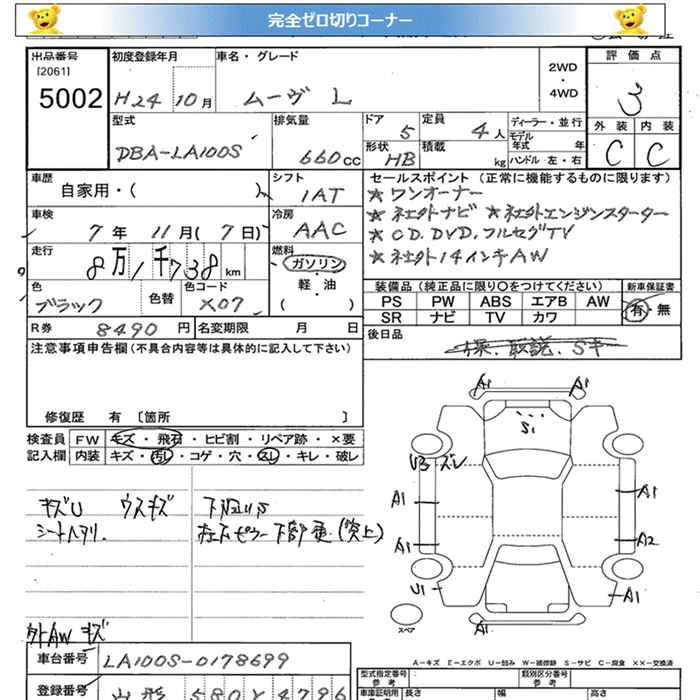 完全ゼロ切りコーナー
出品番号 初度登録年月 車名・グレード 評価点
[2061]
5002 H24 10月 ムーヴ L 2WD・4WD 3
型式 排気量 ドア 定員 ディーラー・並行 外装 内装
DBA-LA100S 660cc 5 4人 モデル年式 年 C C
形状 HB 積載 kg ハンドル 左・右
車歴 シフト セールスポイント (正常に機能するものに限ります)
自家用・( ) 1AT ★ワンオーナー
車検 冷房 ★社外ナビ ★社外エンジンスターター
7年 11月(7日) AAC ★CD.DVD.フルセグTV
走行 燃料 ★社外14インチAW
8万1千738km ガソリン
軽・油
( )
色 色替 色コード 装備品 (純正品に限り○をつけてください) 新車保証書
ブラック X07 PS PW ABS エアB AW 有・無
SR ナビ TV カワ
R券 8490円 名変期限 月 日 後日品
注意事項申告欄(不具合内容等は具体的に記入して下さい) 保.取説.Sキー
修復歴 有 [箇所 ]
検査員 FW キズ・飛石・ヒビ割・リペア跡・×要
記入欄 内装 キズ・汚レ・コゲ・穴・スレ・キレ・破レ
A1 A1
S1
U3 ズレ
A1 A1
A1 A2
U1 A1
A1
スペア
キズU ウスキズ
シートヘタリ.
外AWキズ
A-キズ E-エクボ U-凹み W-補修跡 S-サビ C-腐食 ××-交換済
車台番号 LA100S-0178699 型式指定番号 類別区分番号
参考 参考
登録番号 山形 580 車庫証明用 長さ 幅 高さ